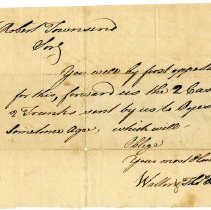 Robert Townsend
Sir
You will by first opportu
for this, forward us the 2 Cas
2 Trunks sent by us to Oyes
Sometime Ago, which will
Oblige
Your most Hum
Walter & Tho